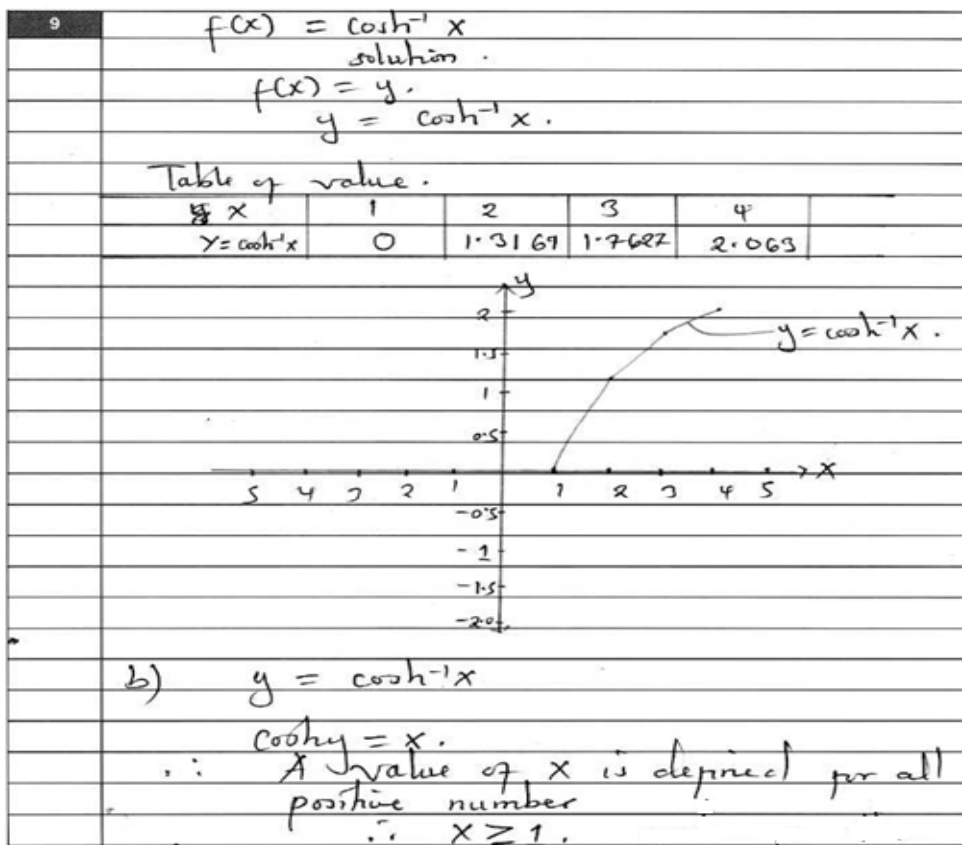 9
f(x) = cosh⁻¹ x
solution.
f(x) = y.
y = cosh⁻¹ x.
Table of value.
x 1 2 3 4
Y = cosh⁻¹x 0 1.3169 1.7627 2.063
y
2
1.5
1
0.5
y = cosh⁻¹ x.
x
5 4 3 2 1 1 2 3 4 5
-0.5
-1
-1.5
-2.0
b) y = cosh⁻¹x
coshy = x.
∴ A value of x is defined for all
positive number
∴ x ≥ 1.